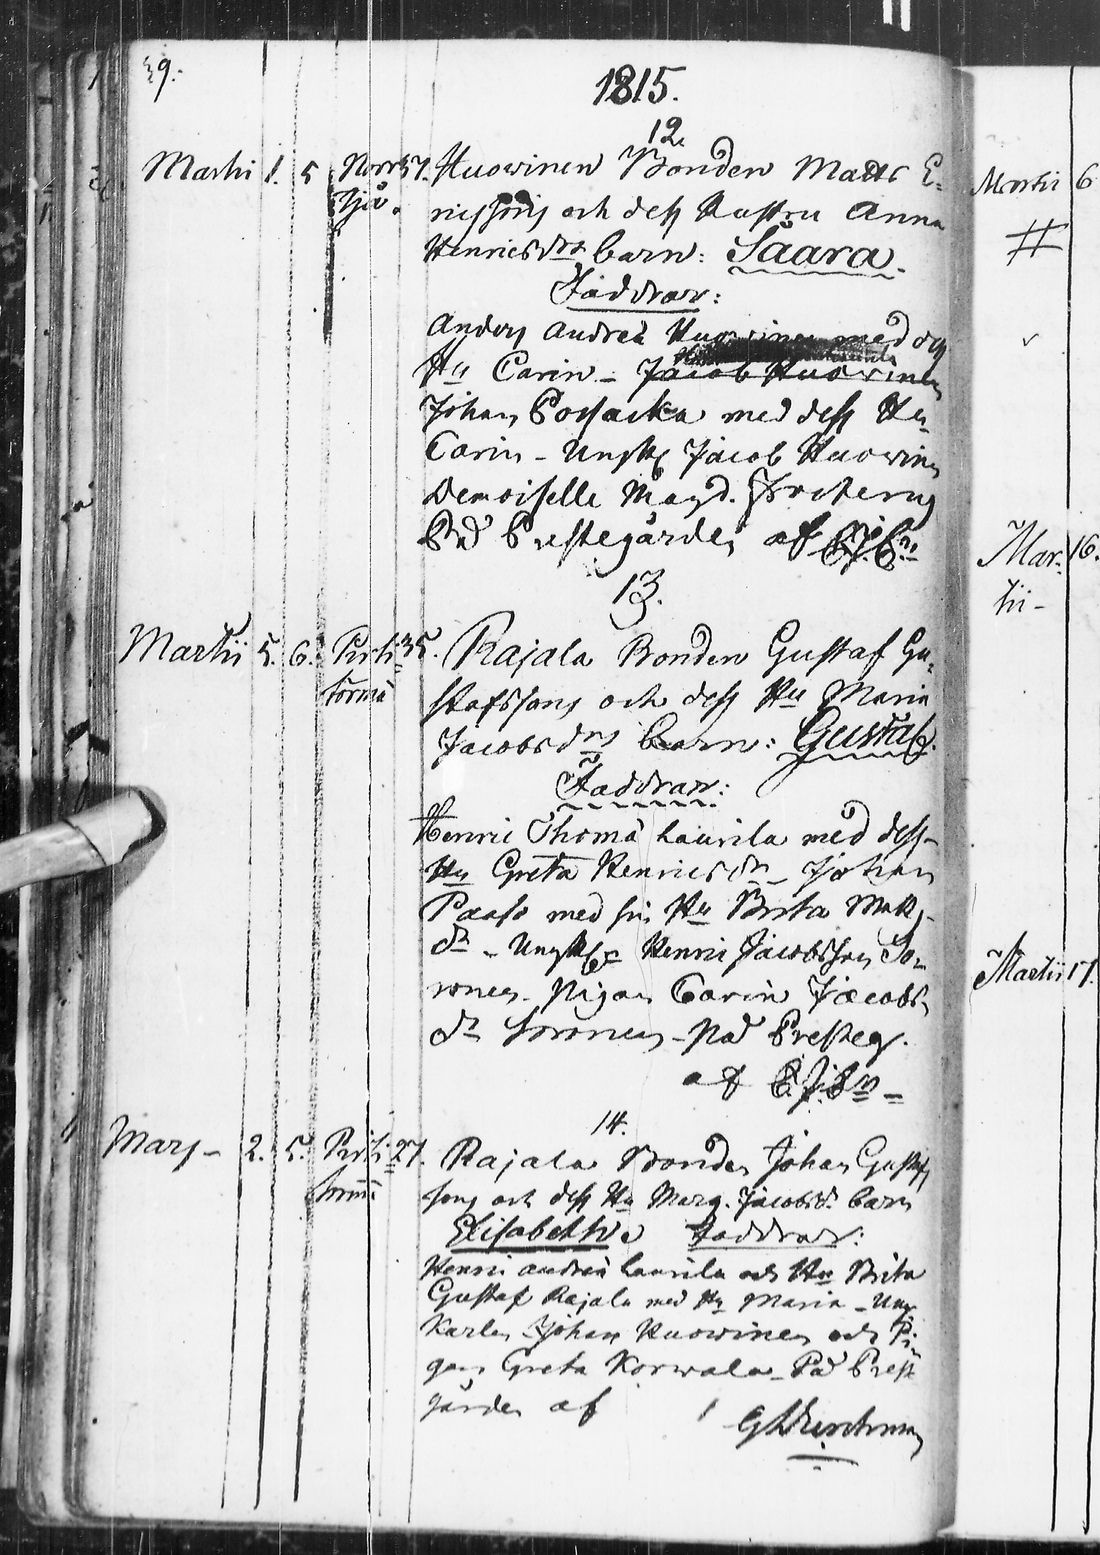 39.
1815.
12.
Martii 1. 5 Norr 37. Huowinen Bonden Matts E-
sjä. ricssons och dess Hustru Anna
Henricsdrs barn: Saara.
Faddrar:
Anders Andreä Huowinen med dess
Hu Carin - Jacob Huowinen
Johan Possacka med dess Hu
Carin - Ungk Jacob Huowinen
Demoiselle Magd.
På Prestegården af
13.
Martii 5. 6. Perti 35. Rajala Bonden Gustaf Gu-
törmä stafssons och dess Hu Maria
Jacobsdrs barn: Gustaf.
Faddrar:
Henric Thomä Laurila med dess
Hu Greta Henricsdr - Johan
Paaso med sin Hu Brita Matts-
dr - Ungk Henric Jacobsson So-
ronen - Pigan Carin Jacobs-
dr Soronen - På Presteg.
af
14.
Mars - 2. 5. Perti 27. Rajala Bonden Johan Gustaf-
törmä sons och dess Hu Marg. Jacobsd. barn
Elisabeth Faddrar:
Henric Andreä Laurila och Hu Brita
Gustaf Rajala med Hu Maria - Ung-
Karlen Johan Huowinen och Pi-
gan Greta Korwala - På Prest
gården af
Martii 6
#
Mar- 16.
tii -
Martii 17.